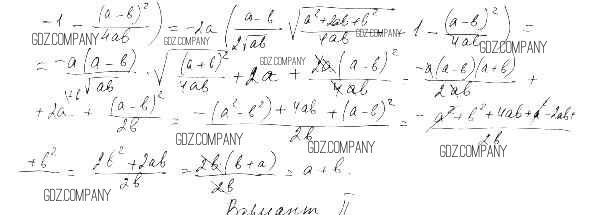 -1 - \frac{(a-b)^2}{4ab}) = -2a (\frac{a-b}{2\sqrt{ab}} \sqrt{\frac{a^2+2ab+b^2}{4ab}} - 1 - \frac{(a-b)^2}{4ab}) =
GDZ.COMPANY GDZ.COMPANY GDZ.COMPANY GDZ.COMPANY
= \frac{-a(a-b)}{\sqrt{ab}} \cdot \sqrt{\frac{(a+b)^2}{4ab}} + 2a + \frac{2a(a-b)^2}{4ab} = \frac{-a(a-b)(a+b)}{2ab} +
GDZ.COMPANY
+ 2a + \frac{(a-b)^2}{2b} = \frac{-(a^2-b^2)+4ab+(a-b)^2}{2b} = \frac{-a^2+b^2+4ab+a^2-2ab+}{2b}
GDZ.COMPANY GDZ.COMPANY GDZ.COMPANY
\frac{+b^2}{} = \frac{2b^2+2ab}{2b} = \frac{2b(b+a)}{2b} = a+b.
GDZ.COMPANY GDZ.COMPANY
Вариант II